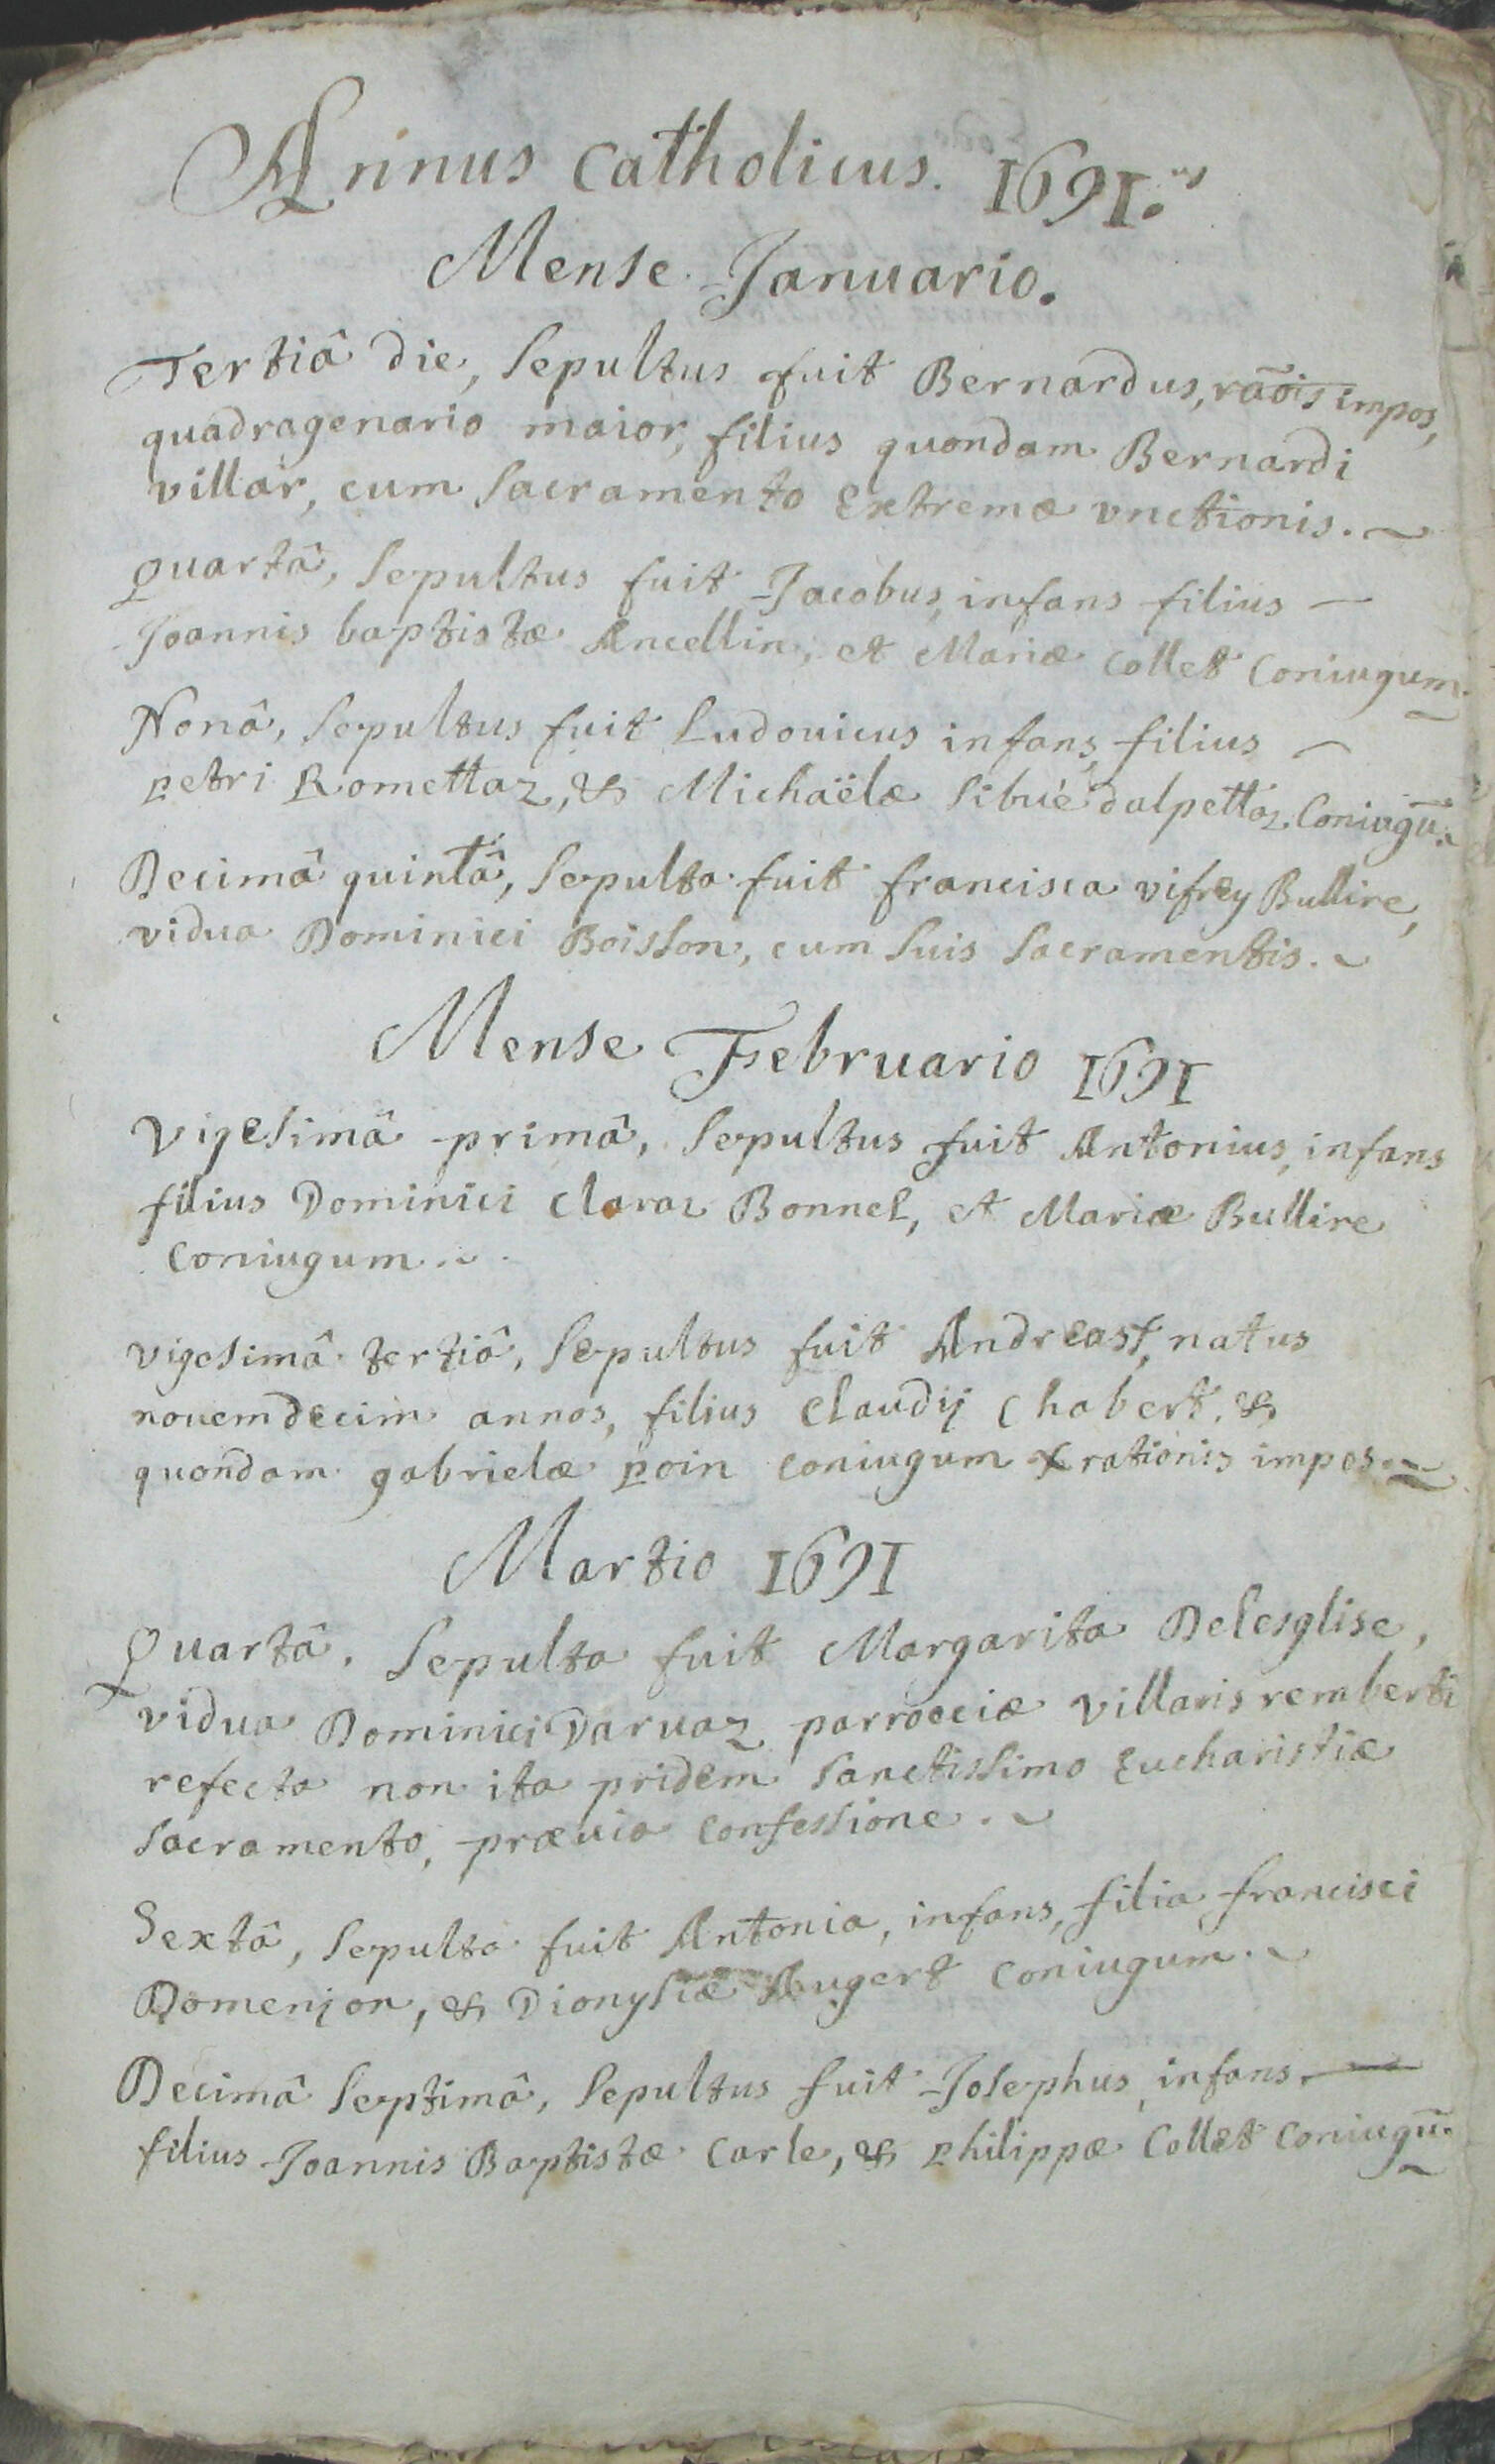 Annus Catholicus. 1691.us
Mense Januario.
Tertiâ die, sepultus fuit Bernardus, rãõis impos,
quadragenario maior, filius quondam Bernardi
villar, cum sacramento Extremæ vnctionis.
Quartâ, sepultus fuit Jacobus, infans filius
Joannis baptistæ Ancellin, et Mariæ Collet Coniugum.
Nonâ, sepultus fuit Ludouicus infans, filius
petri Romettaz, & Michaëlæ sibué dalpettaz. Coniugũ.
Decimâ quintâ, sepulta fuit francisca vifrey Bullire,
vidua Dominici Boisson, cum suis sacramentis.
Mense Februario 1691
Vigesimâ primâ, sepultus fuit Antonius, infans
filius Dominici claraz Bonnel, et Mariæ Bullire
Coniugum.
vigesimâ tertiâ, sepultus fuit Andreas†, natus
nouemdecim annos, filius Claudij Chabert, &
quondam gabrielæ poin coniugum ✗ rationis impos.
Martio 1691
Quartâ, sepulta fuit Margarita Delesglise,
vidua Dominici Daruaz parrocciæ villaris remberti
refecta non ita pridem sanctissimo Eucharistiæ
sacramento, præuia confessione.
Sextâ, sepulta fuit Antonia, infans, filia francisci
Domenjon, & Dionysiæ Augert coniugum.
Decimâ septimâ, sepultus fuit Josephus, infans
filius Joannis Baptistæ Carle, & philippæ Collet Coniugũ.